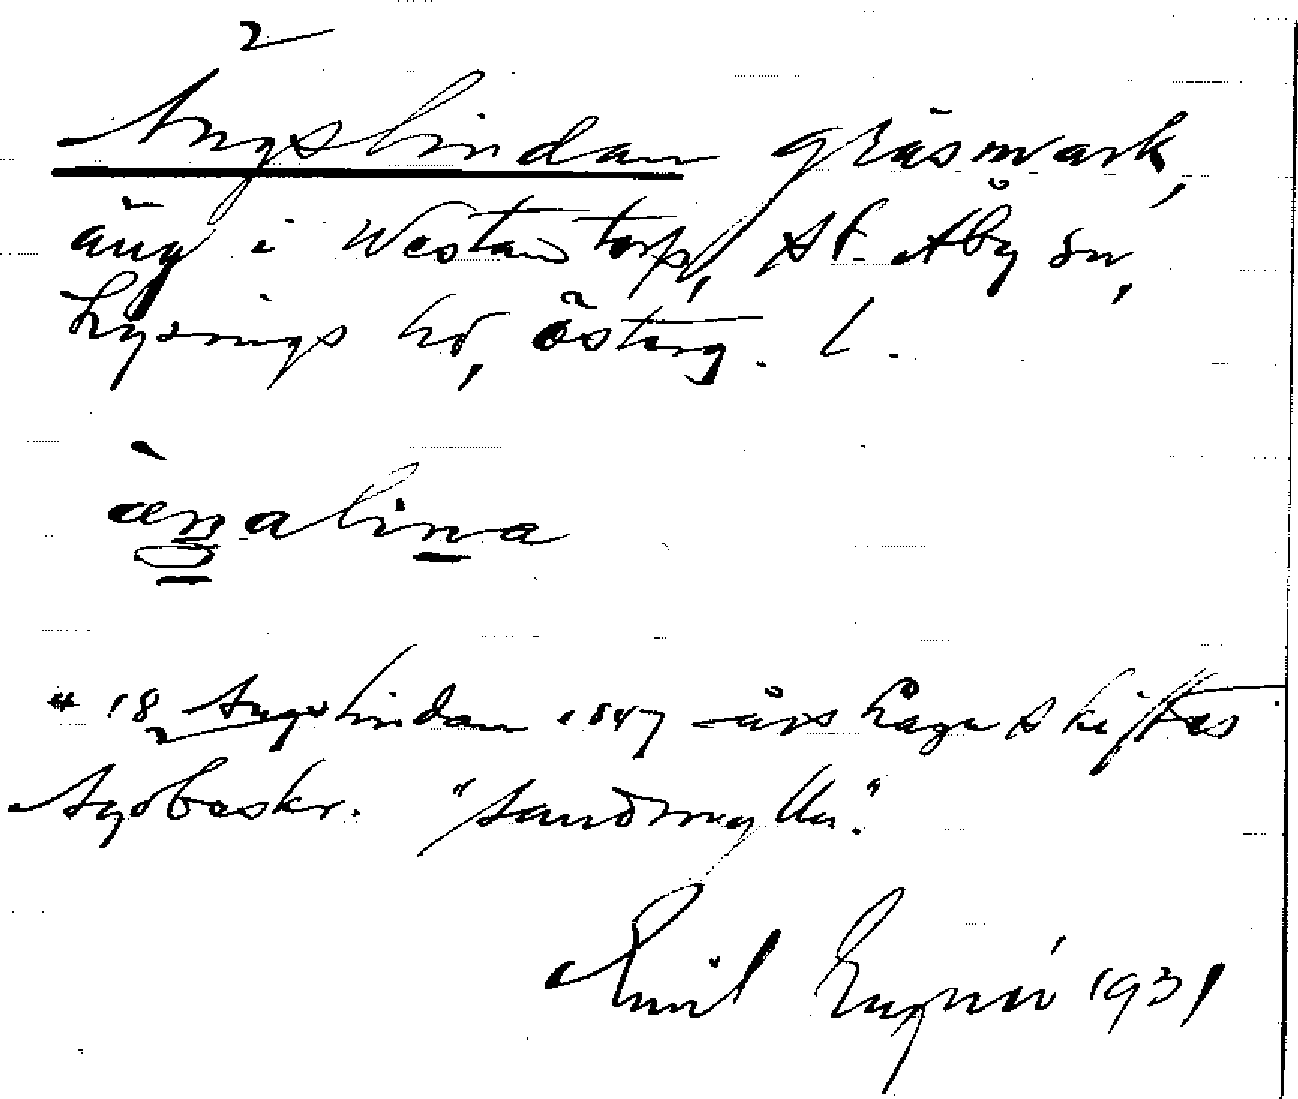 Ängslindan gräsmark,
äng i Westantorp, St. Åby sn,
Lysings hd, österg. l.
ænalina
# 18 Ängslindan 1847 års Laga skiftes
"sandmylla".
Emil 1931